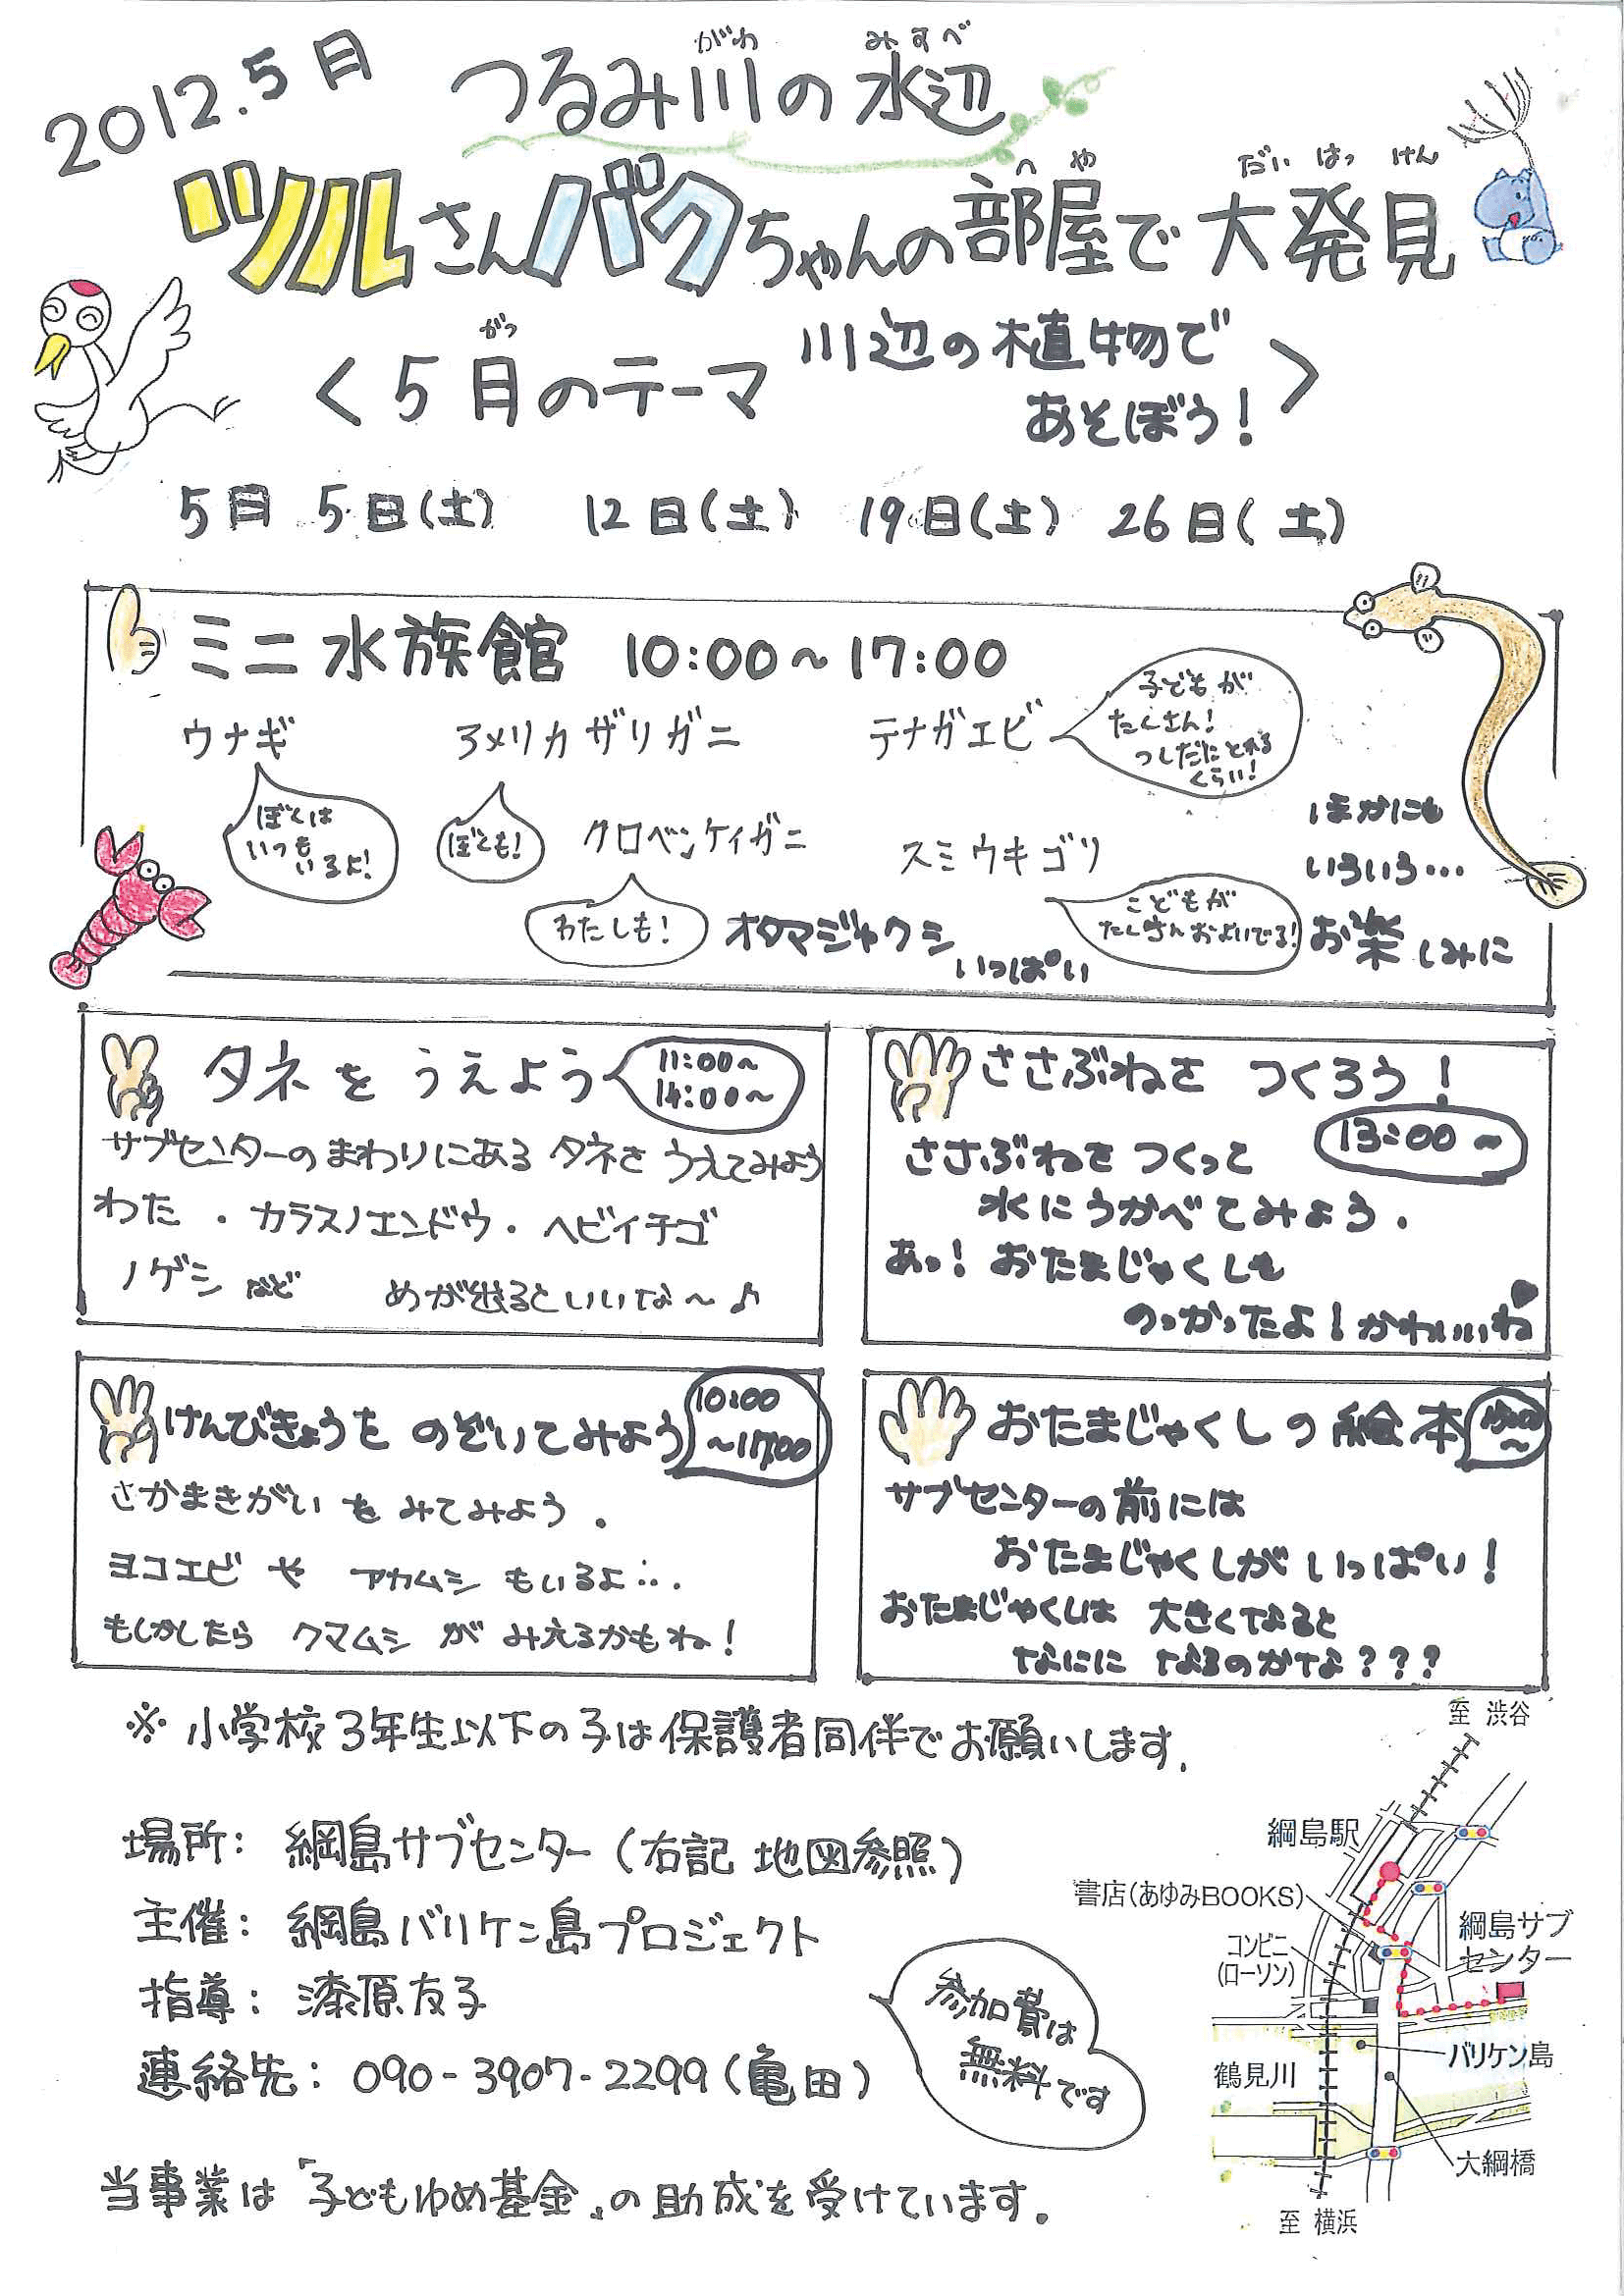 2012.5月
つるみ川の水辺
がわ みずべ
ツルさんバクちゃんの部屋で大発見
へや だい はっ けん
〈5月のテーマ 川辺の植物で
がつ
あそぼう!〉
5月 5日(土) 12日(土) 19日(土) 26日(土)
ミニ水族館 10:00~17:00
ウナギ
ぼくは
いつも
いるよ!
アメリカザリガニ
ぼくも!
テナガエビ
子どもが
たくさん!
くらい!
クロベンケイガニ
わたしも!
スミウキゴリ
こどもが
たくさんおよいでる!
オタマジャクシ
いっぱい
ほかにも
いろいろ…
お楽しみに
タネをうえよう
11:00~
14:00~
サブセンターのまわりにあるタネをうえてみよう
わた・カラスノエンドウ・ヘビイチゴ
ノゲシなど めが出るといいな~♪
ささぶねをつくろう!
13:00~
ささぶねをつくって
水にうかべてみよう.
あっ!おたまじゃくしも
のっかったよ!かわいいね
けんびきょうをのぞいてみよう
10:00
~17:00
さかまきがいをみてみよう.
ヨコエビやアカムシもいるよ…
もしかしたらクマムシがみえるかもね!
おたまじゃくしの絵本
サブセンターの前には
おたまじゃくしがいっぱい!
おたまじゃくしは大きくなると
なにになるのかな???
※小学校3年生以下の子は保護者同伴でお願いします.
場所:綱島サブセンター(右記 地図参照)
主催:綱島バリケン島プロジェクト
指導:漆原友子
連絡先:090-3907-2299(亀田)
参加費は
無料です
当事業は「子どもゆめ基金」の助成を受けています.
至 渋谷
綱島駅
書店(あゆみBOOKS)
コンビニ
(ローソン)
綱島サブ
センター
バリケン島
鶴見川
大綱橋
至 横浜